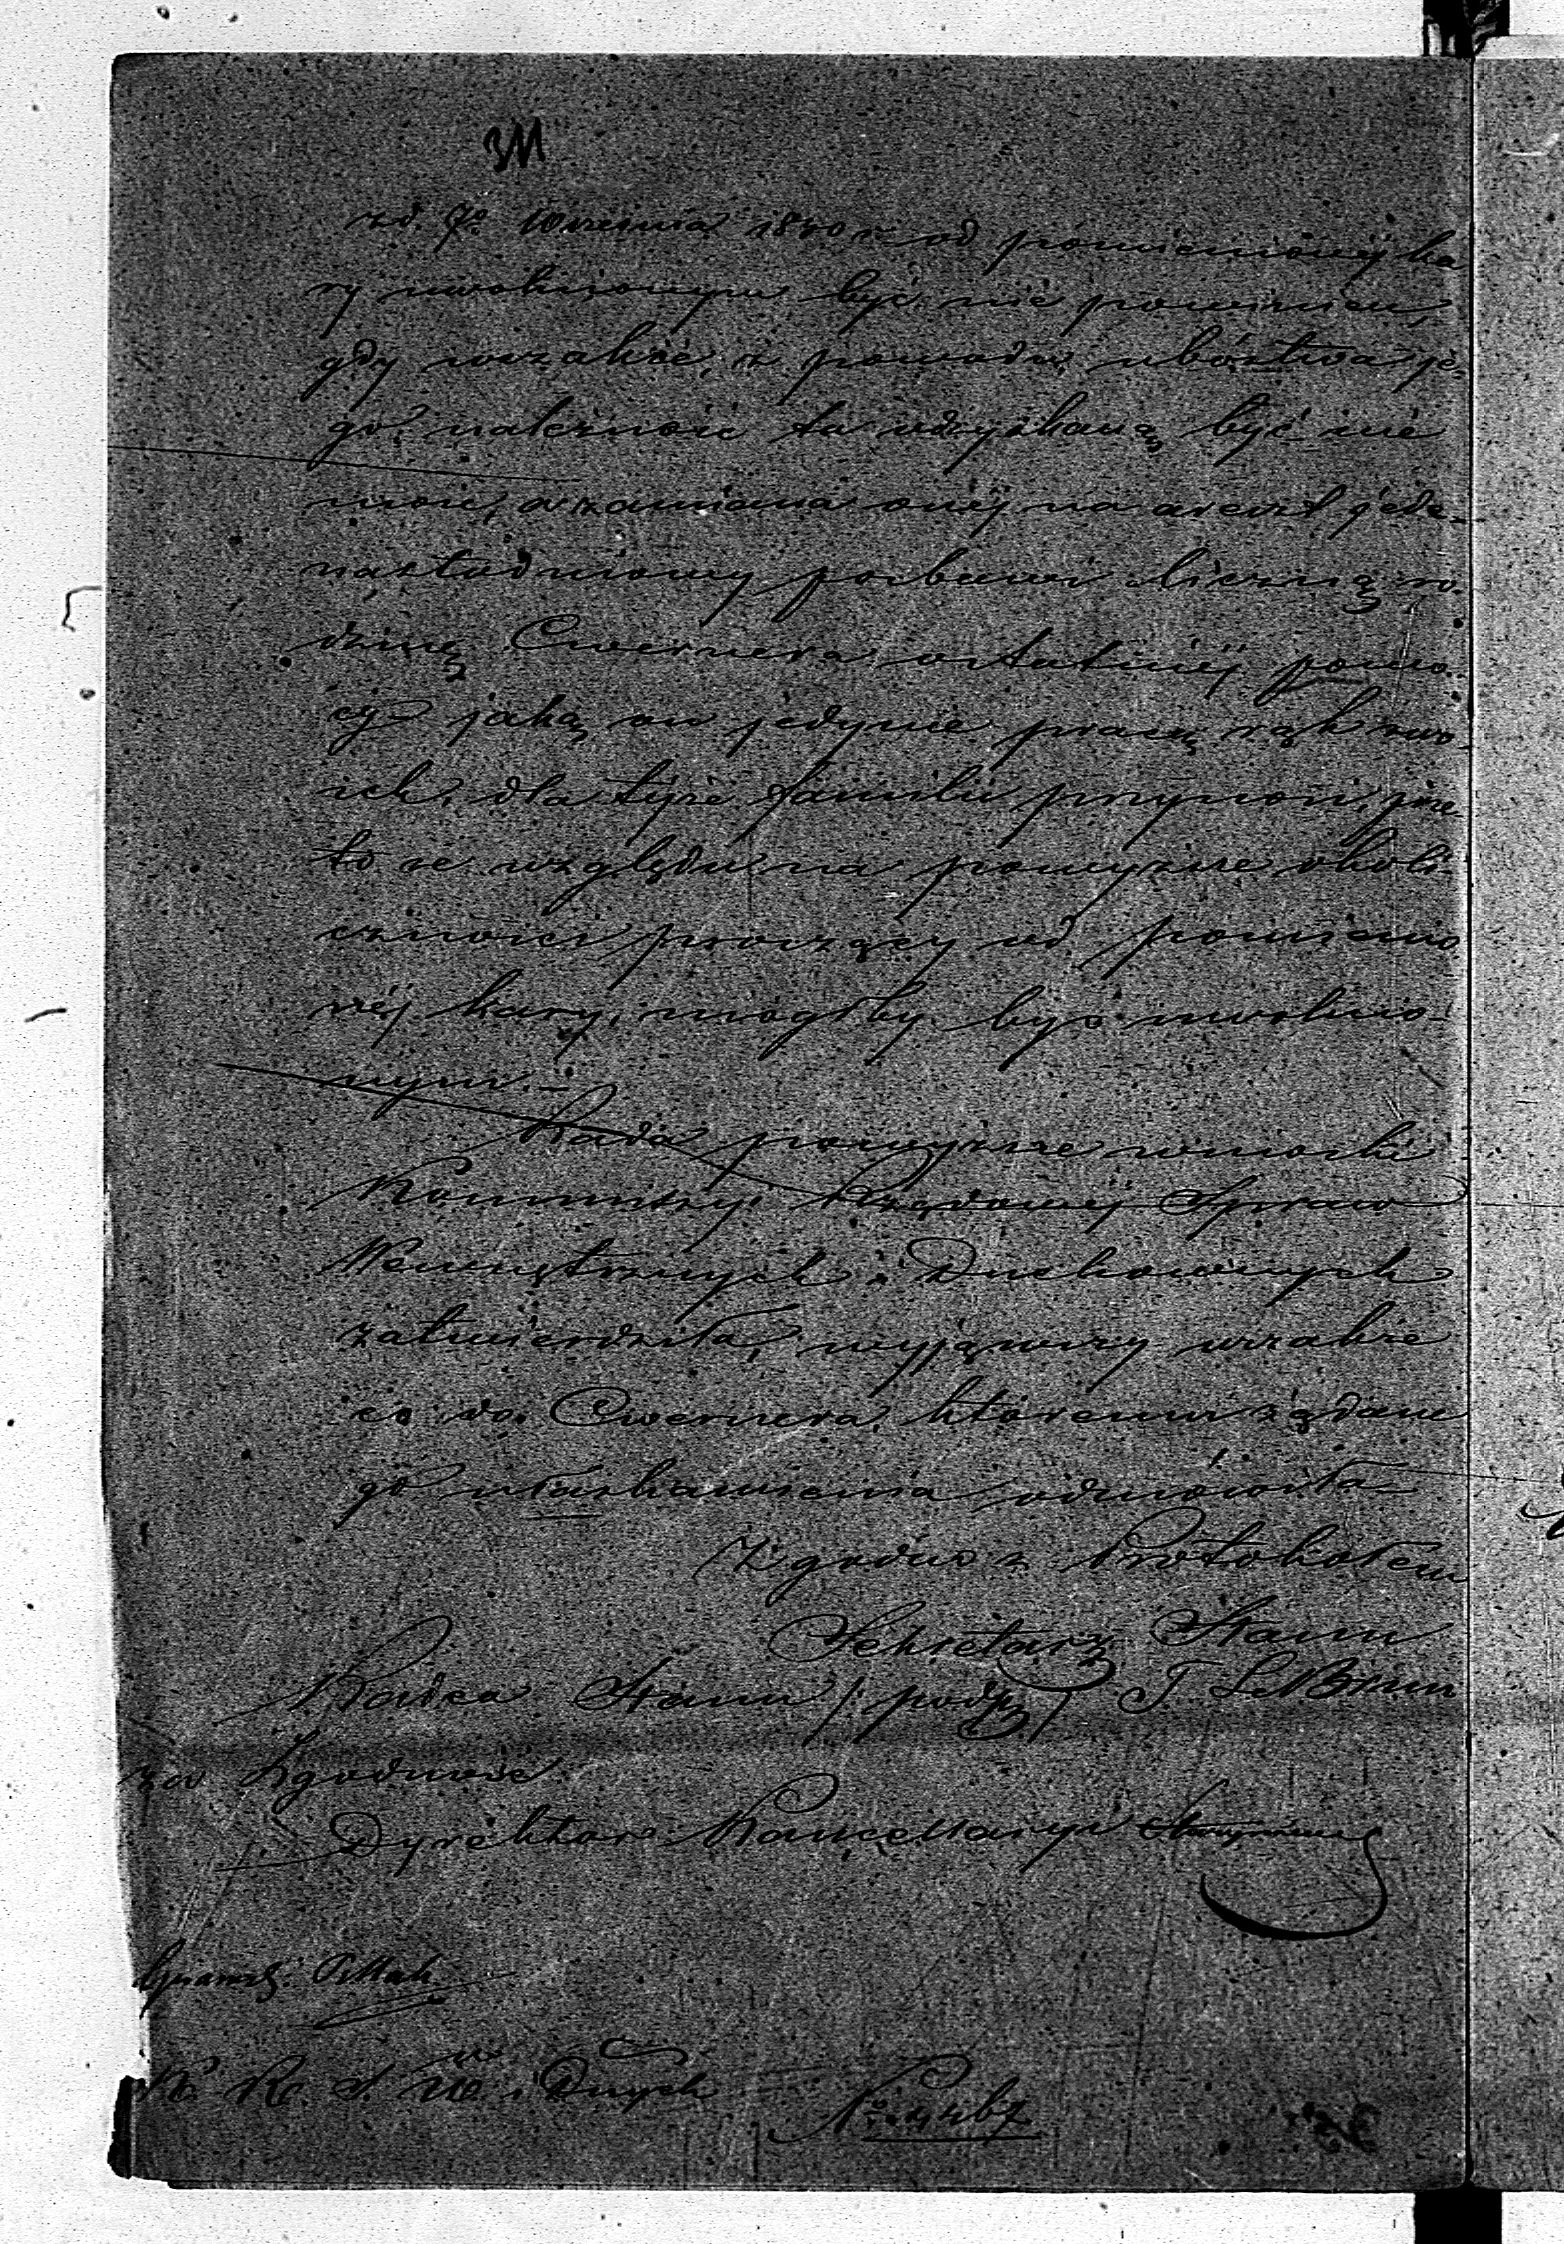 zd. 7º Września 1840 r. od pomienionéj ka
ry uwolnionym być nie powinien,
gdy wszakże, z powodu ubóstwa je-
go należność ta odzyskaną być nie
może, a zamiana onéj na areszt jede-
nastodniowy pozbawi liczną ro-
dzinę Cwernera ostatniéj pomo-
cy jaką on jedynie pracą rąk swo-
ich, dla téjże familii przynosi, prze-
to ze względu na powyższe okoli-
czności proszący od pomienio
néj kary, mógłby być uwolnio-
nym.–
Rada powyższe wnioski
Kommissyi Rządowéj Spraw
Wewnętrznych i Duchownych
zatwierdziła, wyjąwszy wszakże
co do Cwernera, któremu żądane
go ułaskawienia odmówiła–
Zgodno z Protokołem
Sekretarz Stanu
Radca Stanu /: podp: / T. Le Brun
za Zgodność
Dyrektor Kancellaryi
K. R. S. W. i Dnych